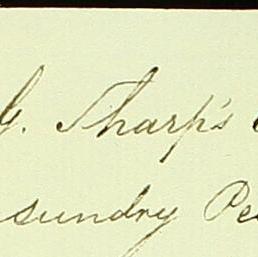 G. Tharp's
sundry